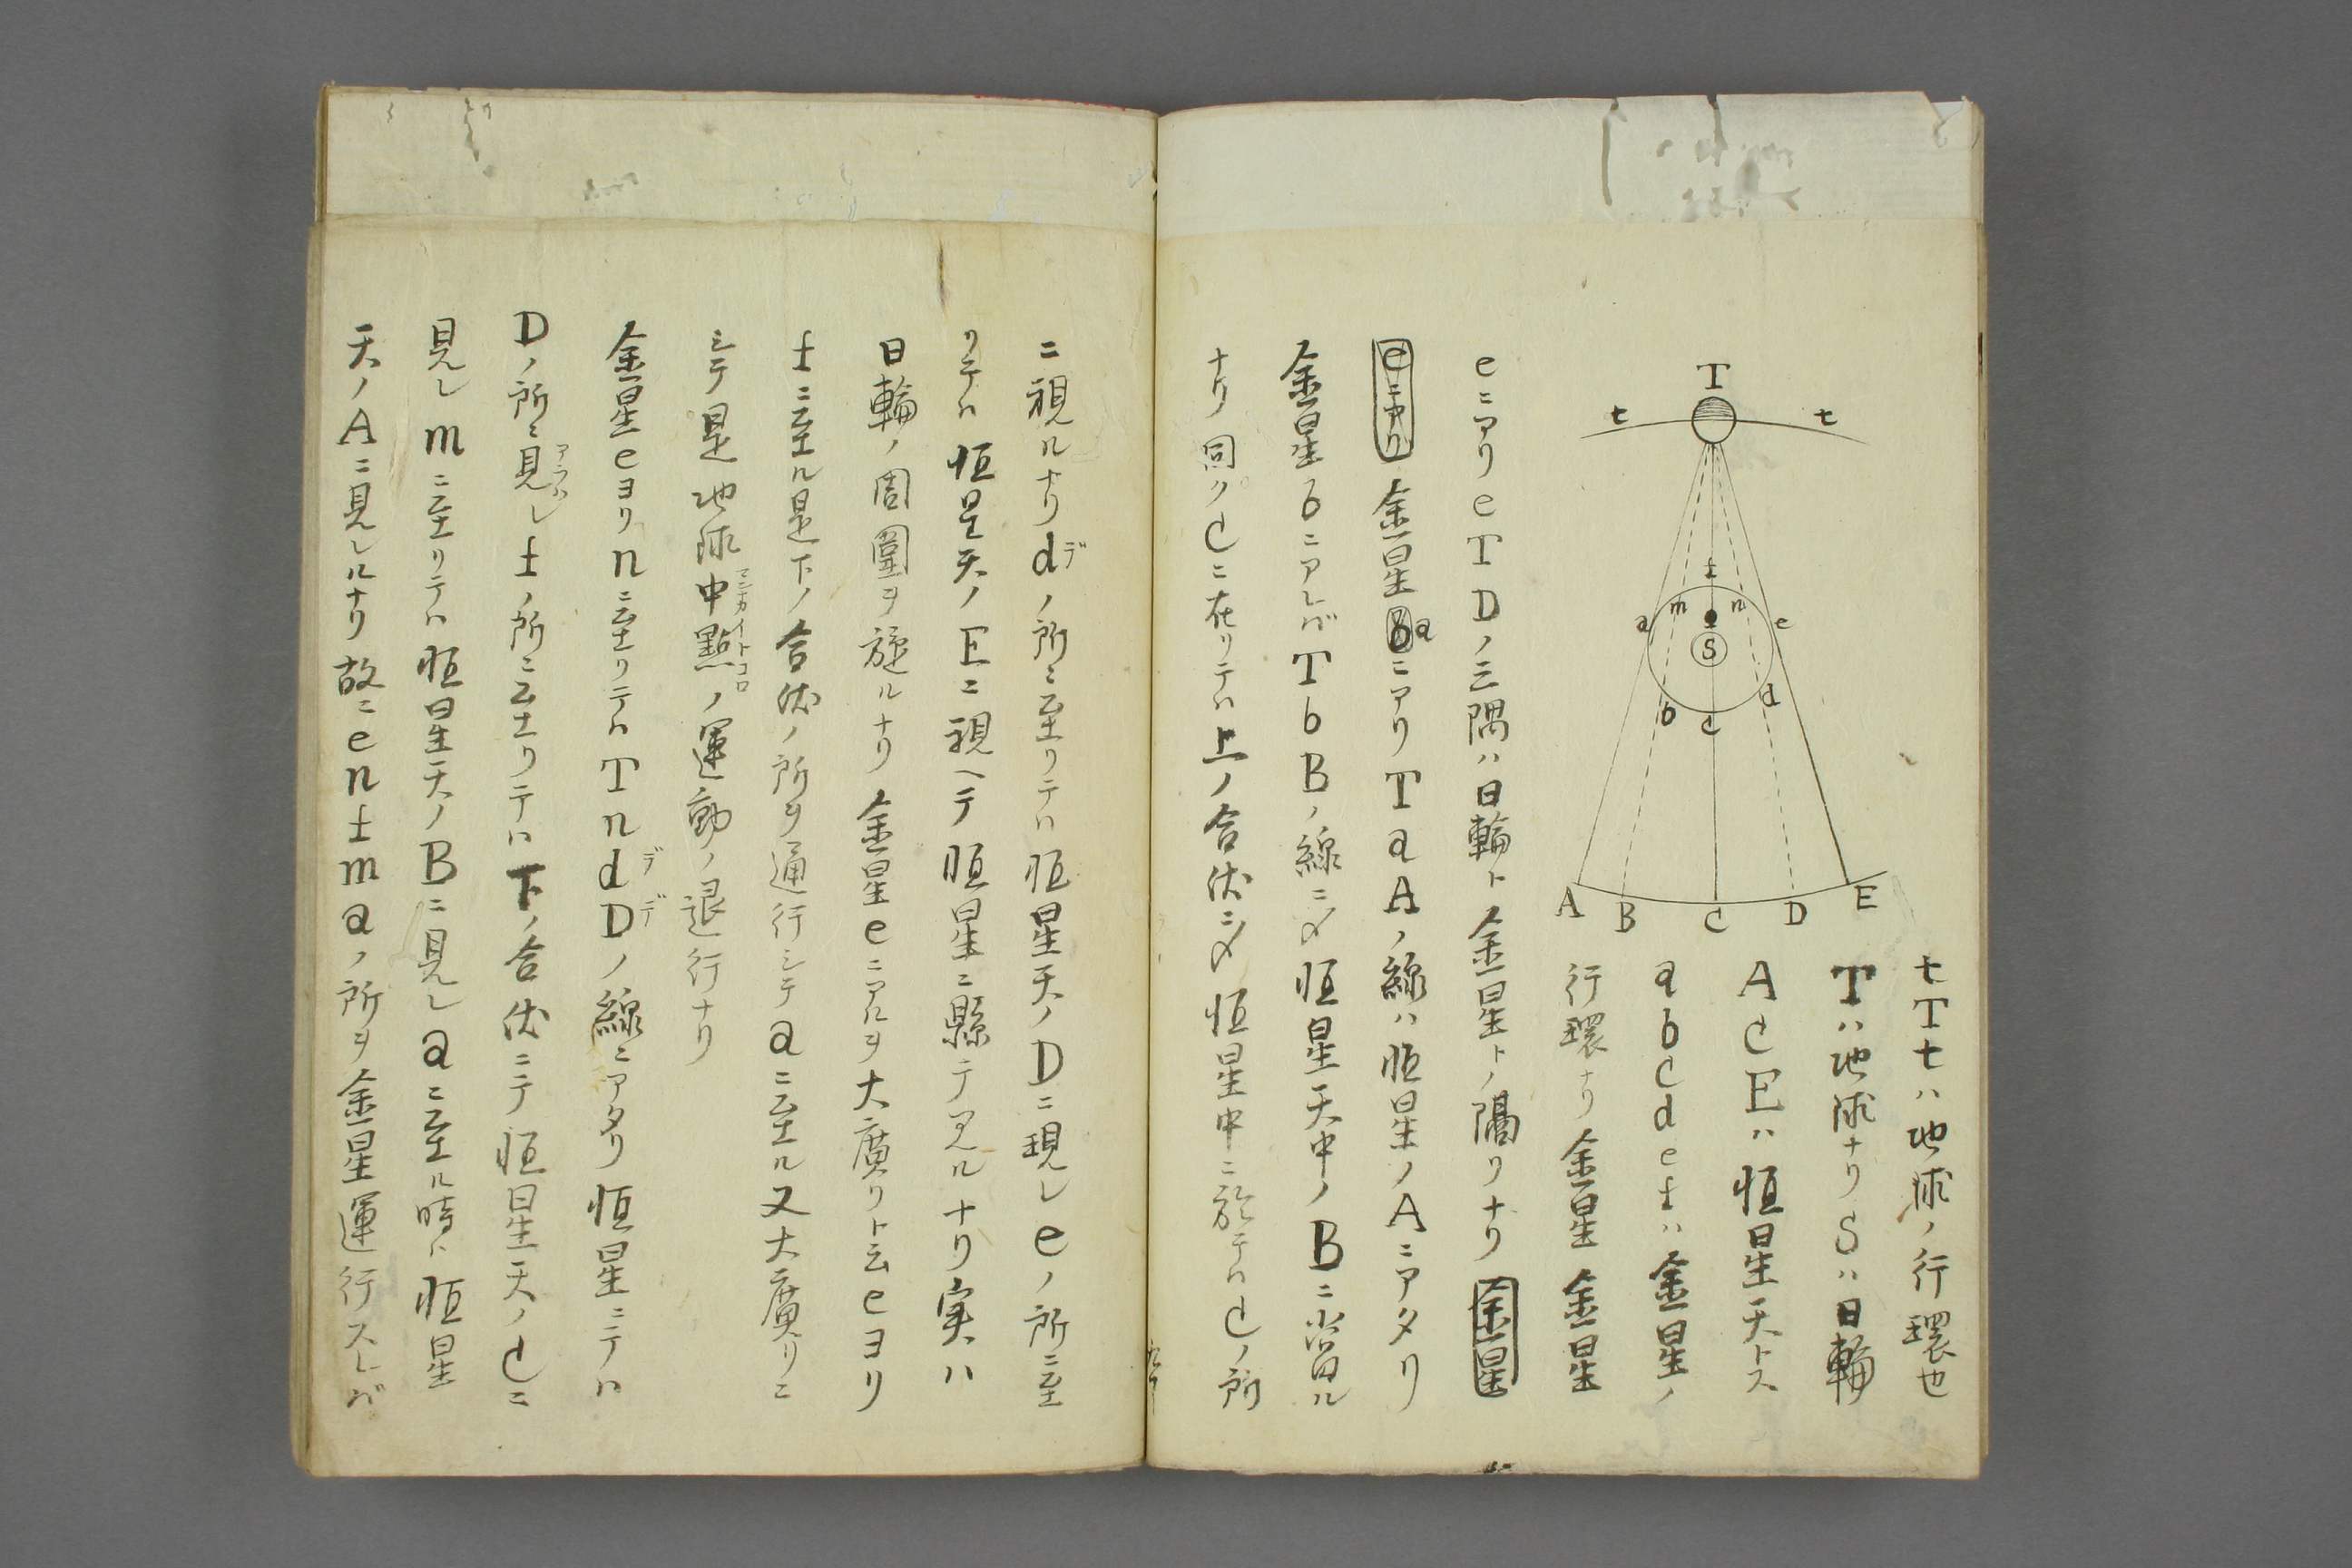 T
t t
f
m n
a e
S
b d
c
A B C D E
tTtハ地球ノ行環也
Tハ地球ナリSハ日輪
ACEハ恒星天トス
abcdefハ金星ノ
行環ナリ金星金星
eニアリeTDノ三隅ハ日輪ト金星トノ隔リナリ金星
eニアリ金星baニアリTaAノ線ハ恒星ノAニアタリ
金星bニアレバTbBノ線ニ〆恒星天中ノBニ當ル
ナリ同クCニ在リテハ上ノ合伏ニ〆恒星中ニ於テハCノ所
ニ視ルナリdデノ所ニ至リテハ恒星天ノDニ現レeノ所ニ至
リテハ恒星天ノEニ視ヘテ恒星ニ縣テアルナリ実ハ
日輪ノ周圍ヲ旋ルナリ金星eニアルヲ大廣リト云eヨリ
fニ至ル是下ノ合伏ノ所ヲ通行シテaニ至ル又大廣リニ
シテ是地球中點マンナカイトコロノ運動ノ退行ナリ
金星eヨリnニ至リテハTndデDデノ線ニアタリ恒星ニテハ
Dノ所ニ見アラハレfノ所ニ至リテハ下ノ合伏ニテ恒星天ノCニ
見レmニ至リテハ恒星天ノBニ見レaニ至ル時ハ恒星
天ノAニ見レルナリ故ニenfmaノ所ヲ金星運行スレバ